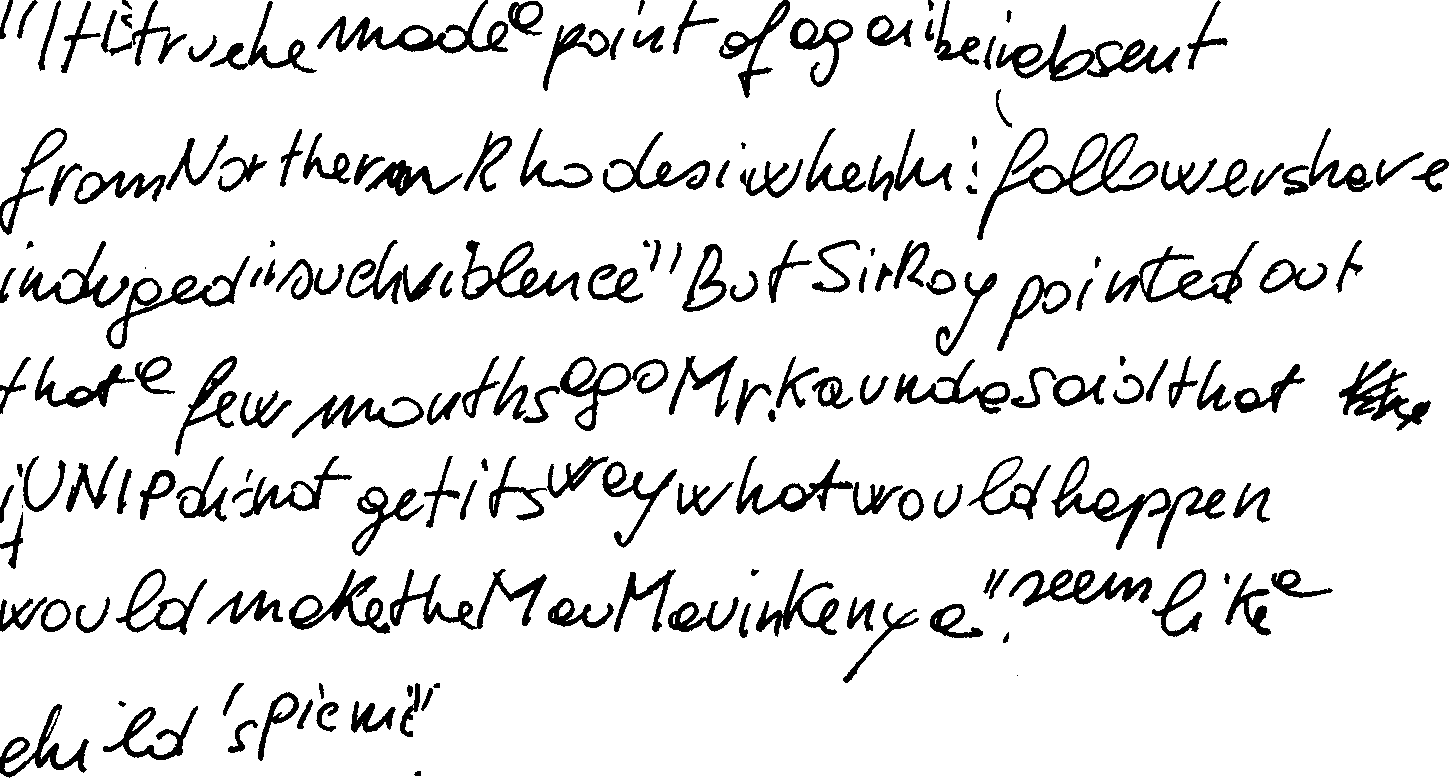 "It is true he made a point of again being absent
from Northern Rhodesia when his followers have
indulged in such violence" But Sir Roy pointed out
that a few months ago Mr. Kaunda said that
if UNIP did not get its way what would happen
would make the Mau Mau in Kenya." seem like a
child's picnic".